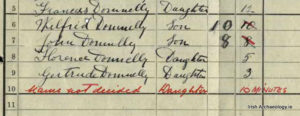 5 Frances Donnelly Daughter 12
6 Wilfred Donnelly Son 10
7 John Donnelly Son 8
8 Florence Donnelly Daughter 5
9 Gertrude Donnelly Daughter 3
10 Name not decided Daughter 10 MINUTES
11
Irish Archaeology.ie